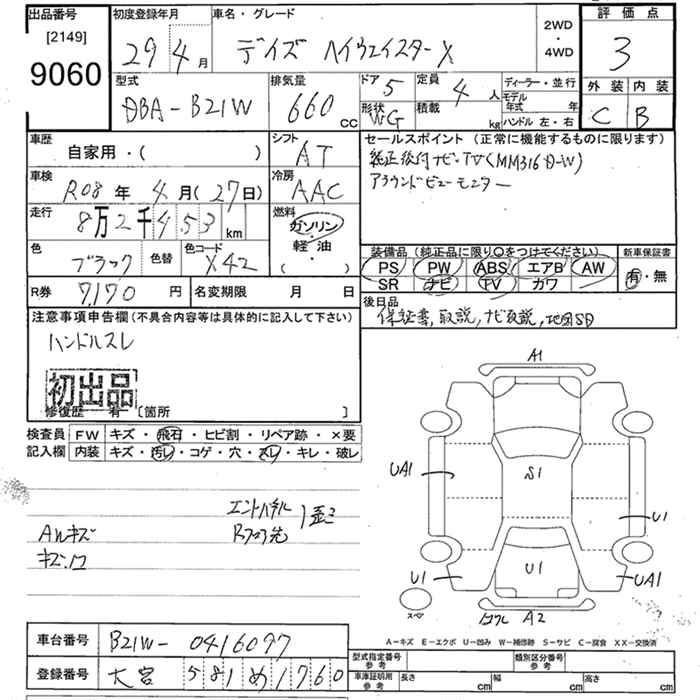 出品番号
[2149]
9060
初度登録年月
29 4月
車名・グレード
デイズ ハイウェイスターX
2WD
・
4WD
評価点
3
型式
DBA-B21W
排気量
660 cc
ドア 5
形状 WG
定員 4 人
積載 kg
ディーラー・並行
モデル年式 年
ハンドル 左・右
外装 内装
C B
車歴
自家用・( )
シフト
AT
セールスポイント (正常に機能するものに限ります)
純正後付ナビ・TV(MM316D-W)
アラウンドビューモニター
車検
R08年 4月(27日)
冷房
AAC
走行
8万2千453 km
燃料
ガソリン
軽・油
( ・ )
色
ブラック
色替
色コード
X42
装備品 (純正品に限り〇をつけてください)
PS PW ABS エアB AW
SR ナビ TV カワ
新車保証書
有・無
R券 7,170 円
名変期限 月 日
後日品
保証書,取説,ナビ取説,地図SD
注意事項申告欄(不具合内容等は具体的に記入して下さい)
ハンドルスレ
初出品
修復歴 有 [箇所 ]
検査員 FW キズ・飛石・ヒビ割・リペア跡・×要
記入欄 内装 キズ・汚レ・コゲ・穴・スレ・キレ・破レ
A1
UA1
S1
U1
U1
U1
UA1
A2
スペア
Aルキズ
A-キズ E-エクボ U-凹み W-補修跡 S-サビ C-腐食 XX-交換済
車台番号 B21W-0416097
登録番号 大宮 581め1760
型式指定番号
参考
類別区分番号
参考
車庫証明用
参考
長さ cm
幅 cm
高さ cm